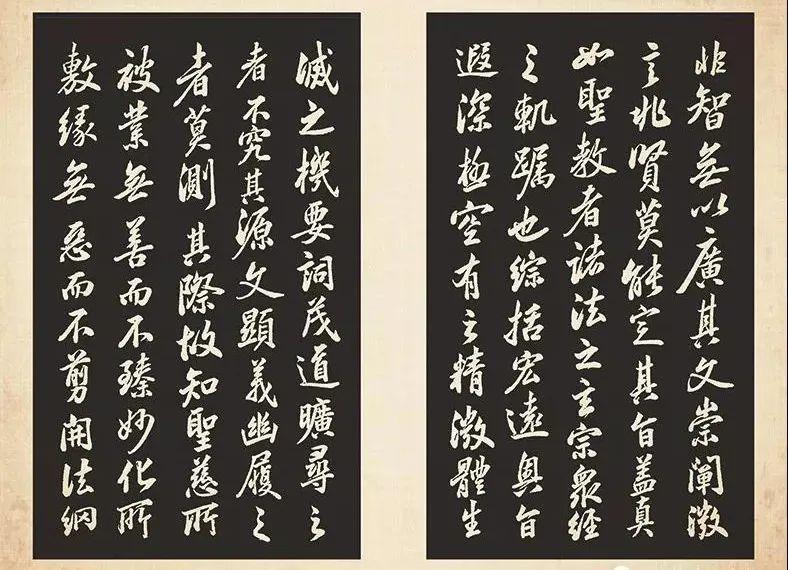 非智無以廣其文崇闡微
言非賢莫能定其旨蓋真
如聖教者諸法之玄宗衆經
之軌躅也綜括宏遠奧旨
遐深極空有之精微體生
滅之機要詞茂道曠尋之
者不究其源文顯義幽履之
者莫測其際故知聖慈所
被業無善而不臻妙化所
敷緣無惡而不剪開法網